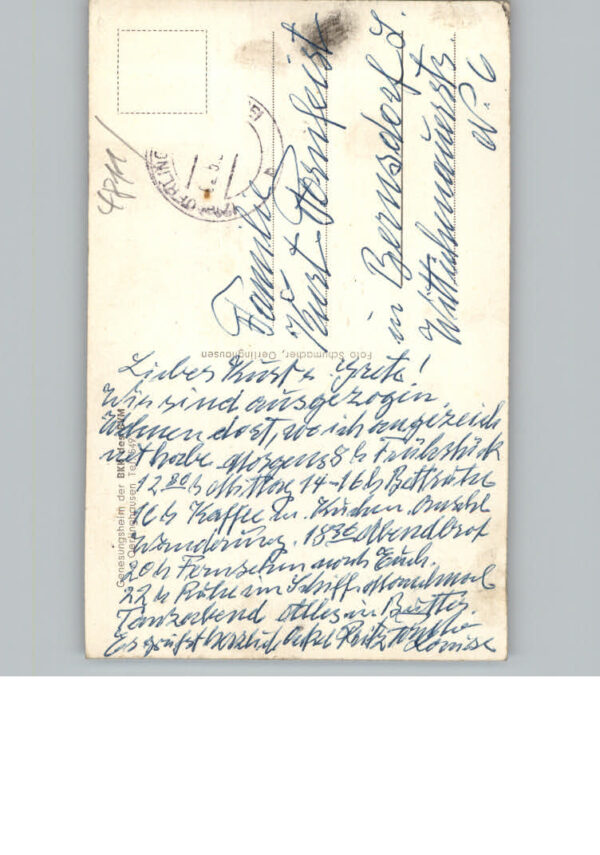 4811
OERLING
Familie
Kurt + 
in Bernsdorf
N. 6
Foto Schumacher, Oerlinghausen
Genesungsheim der BKK des GVM
Oerlinghausen Tel.
Liebes Kurt + Greta!
Wir sind ausgezogen,
wohnen dort, wo ich angezeich
net habe. Morgens 8 h Frühstück
12 00 h Mittag 14-16 h Bettruhe
16 h Kaffee u. Kuchen. Anschl
Wanderung. 18 30 Abendbrot
20 h Fernsehen nach Euch.
22 h Ruhe im Schiff. Manchmal
Tanzabend Alles in Butter.
Es grüsst herzlich Onkel Fritz Tante Louise